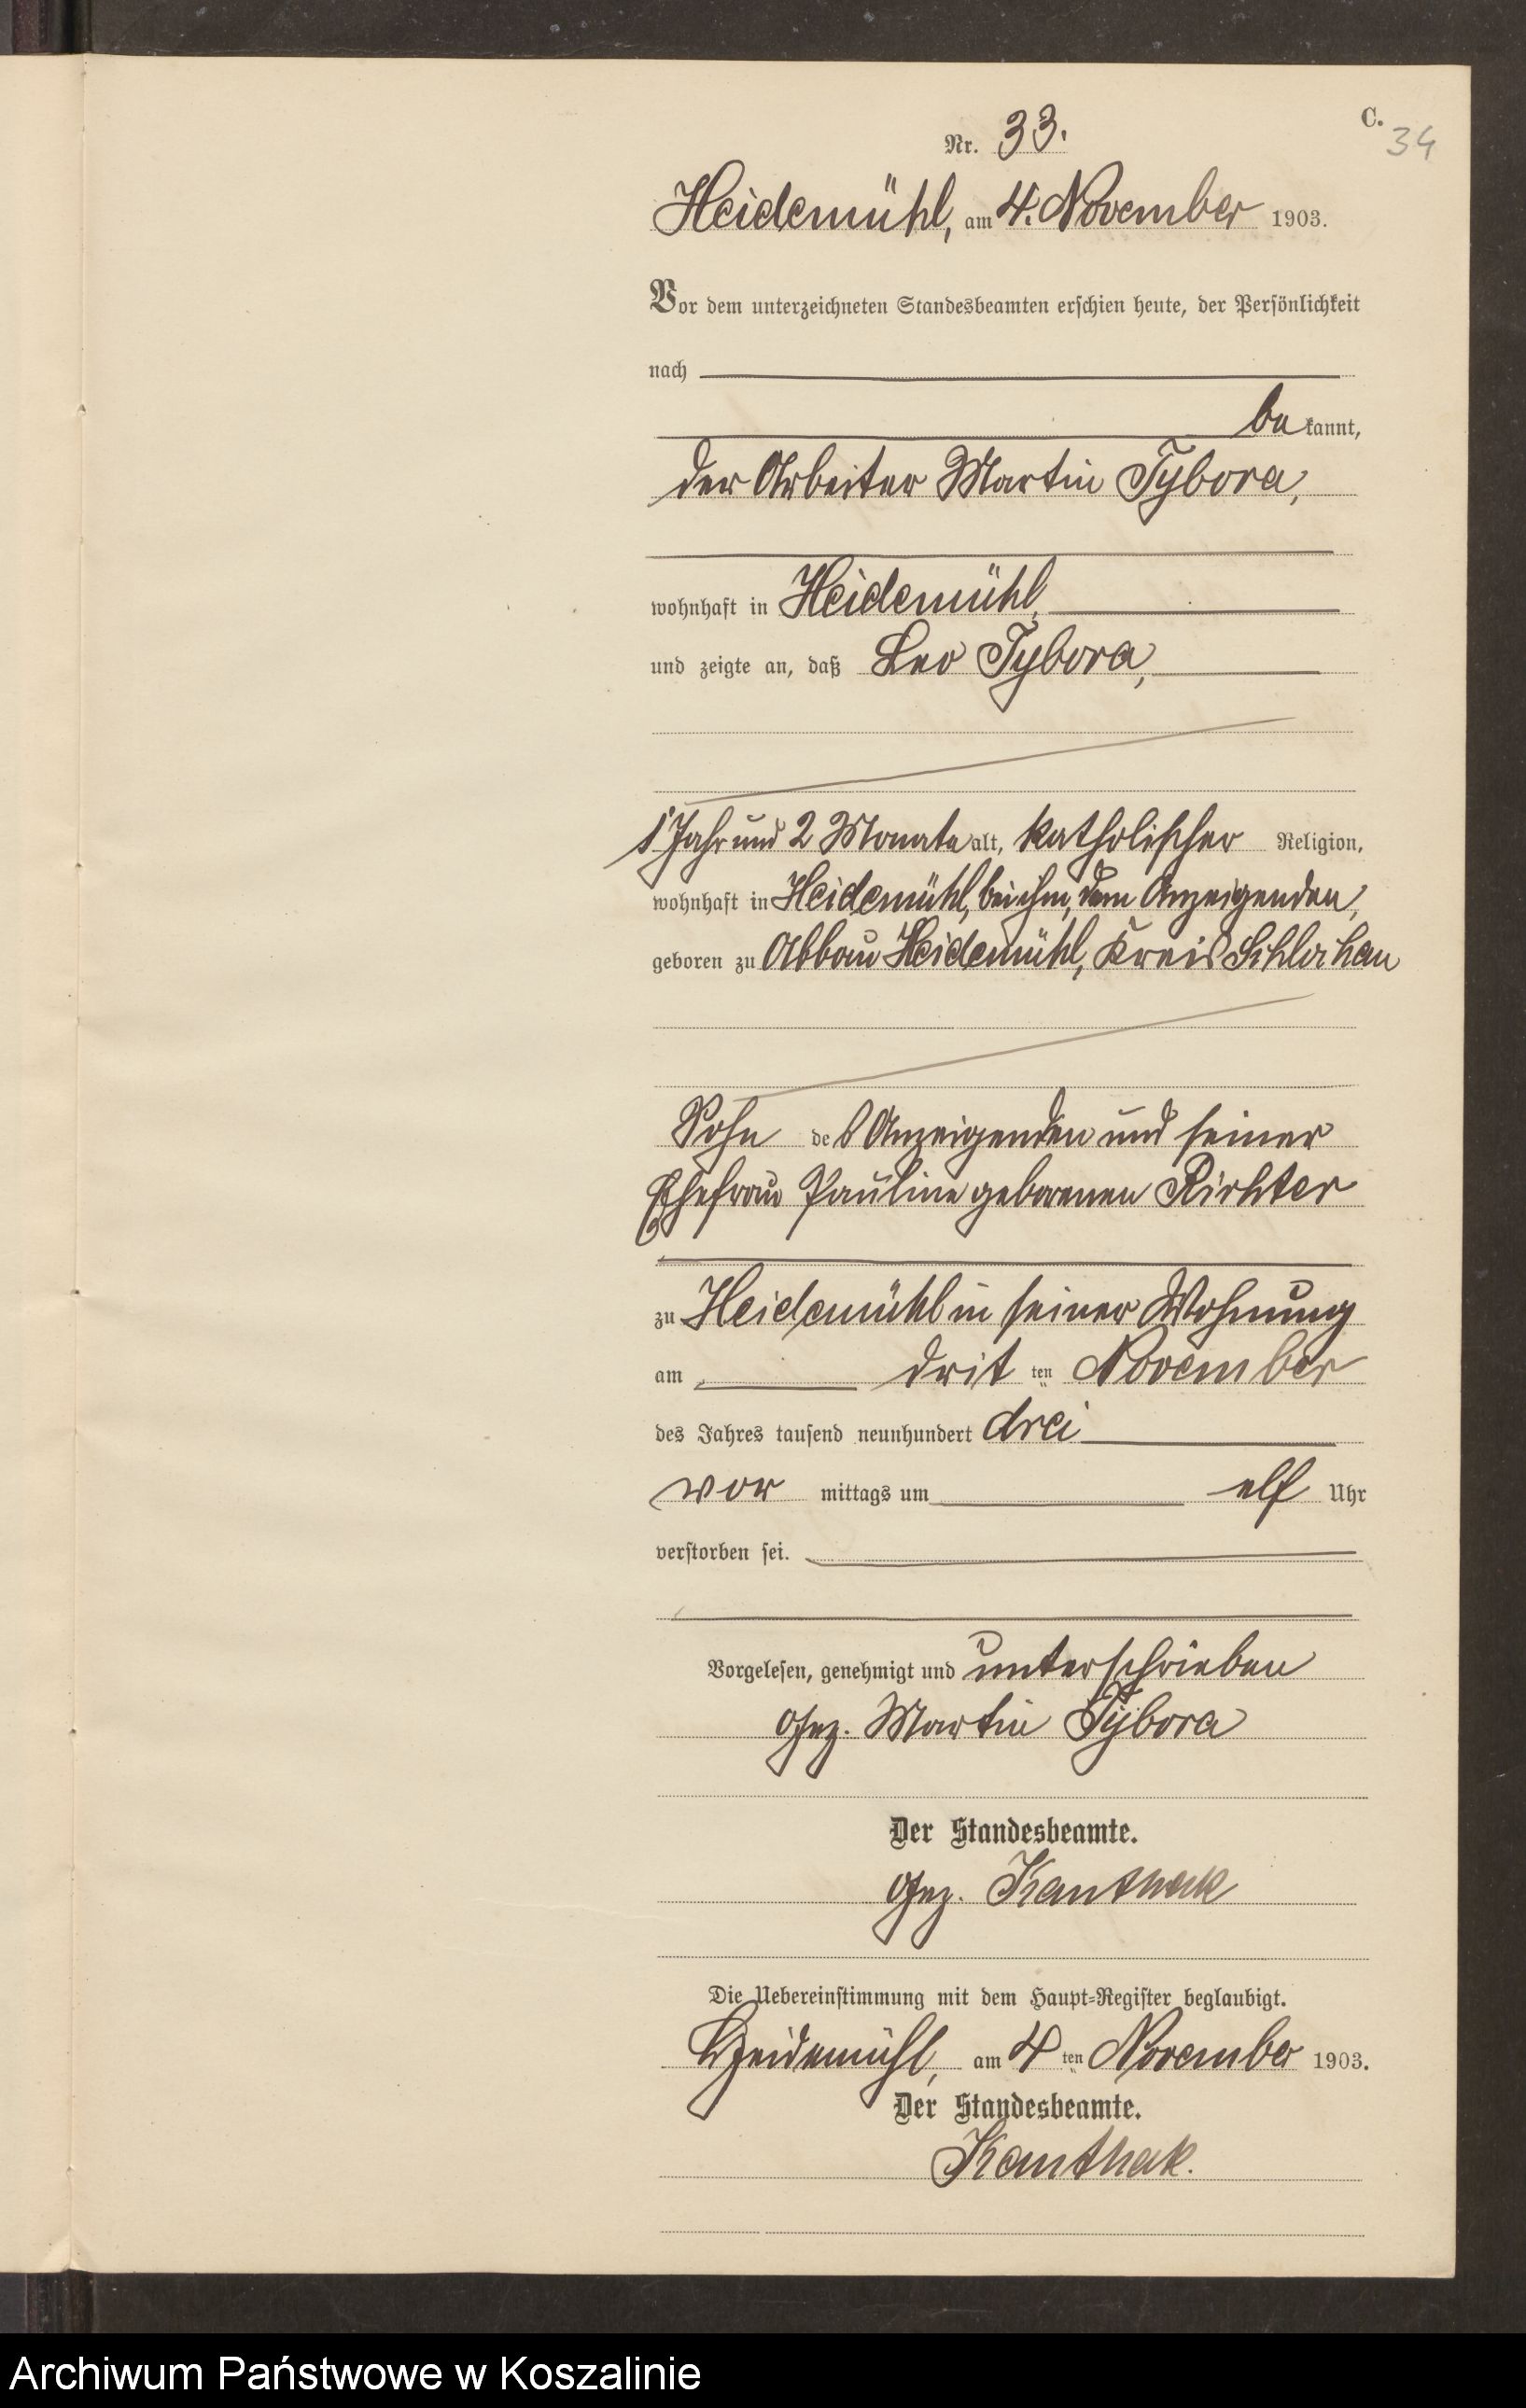 C.
34
Nr. 33.
Heidemühl, am 4. November 1903.
Vor dem unterzeichneten Standesbeamten erschien heute, der Persönlichkeit
nach
be kannt,
der Arbeiter Martin Tybora,
wohnhaft in Heidemühl,
und zeigte an, daß Leo Tybora,
1 Jahr und 2 Monate alt, katholischer Religion,
wohnhaft in Heidemühl, bei ihm, dem Anzeigenden,
geboren zu Abbau Heidemühl, Kreis Schlochau
Sohn des Anzeigenden und seiner
Ehefrau Pauline geborenen Richter
zu Heidemühl in seiner Wohnung
am drit ten November
des Jahres tausend neunhundert drei
vor mittags um elf Uhr
verstorben sei.
Vorgelesen, genehmigt und unterschrieben
Gez. Martin Tybora
Der Standesbeamte.
Gez. Kanthak
Die Uebereinstimmung mit dem Haupt-Register beglaubigt.
Heidemühl, am 4 ten November 1903.
Der Standesbeamte.
Kanthak.
Archiwum Państwowe w Koszalinie